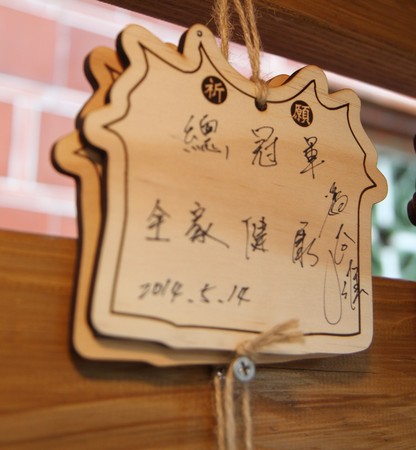 祈願
總冠軍
全家健康
2014.5.14